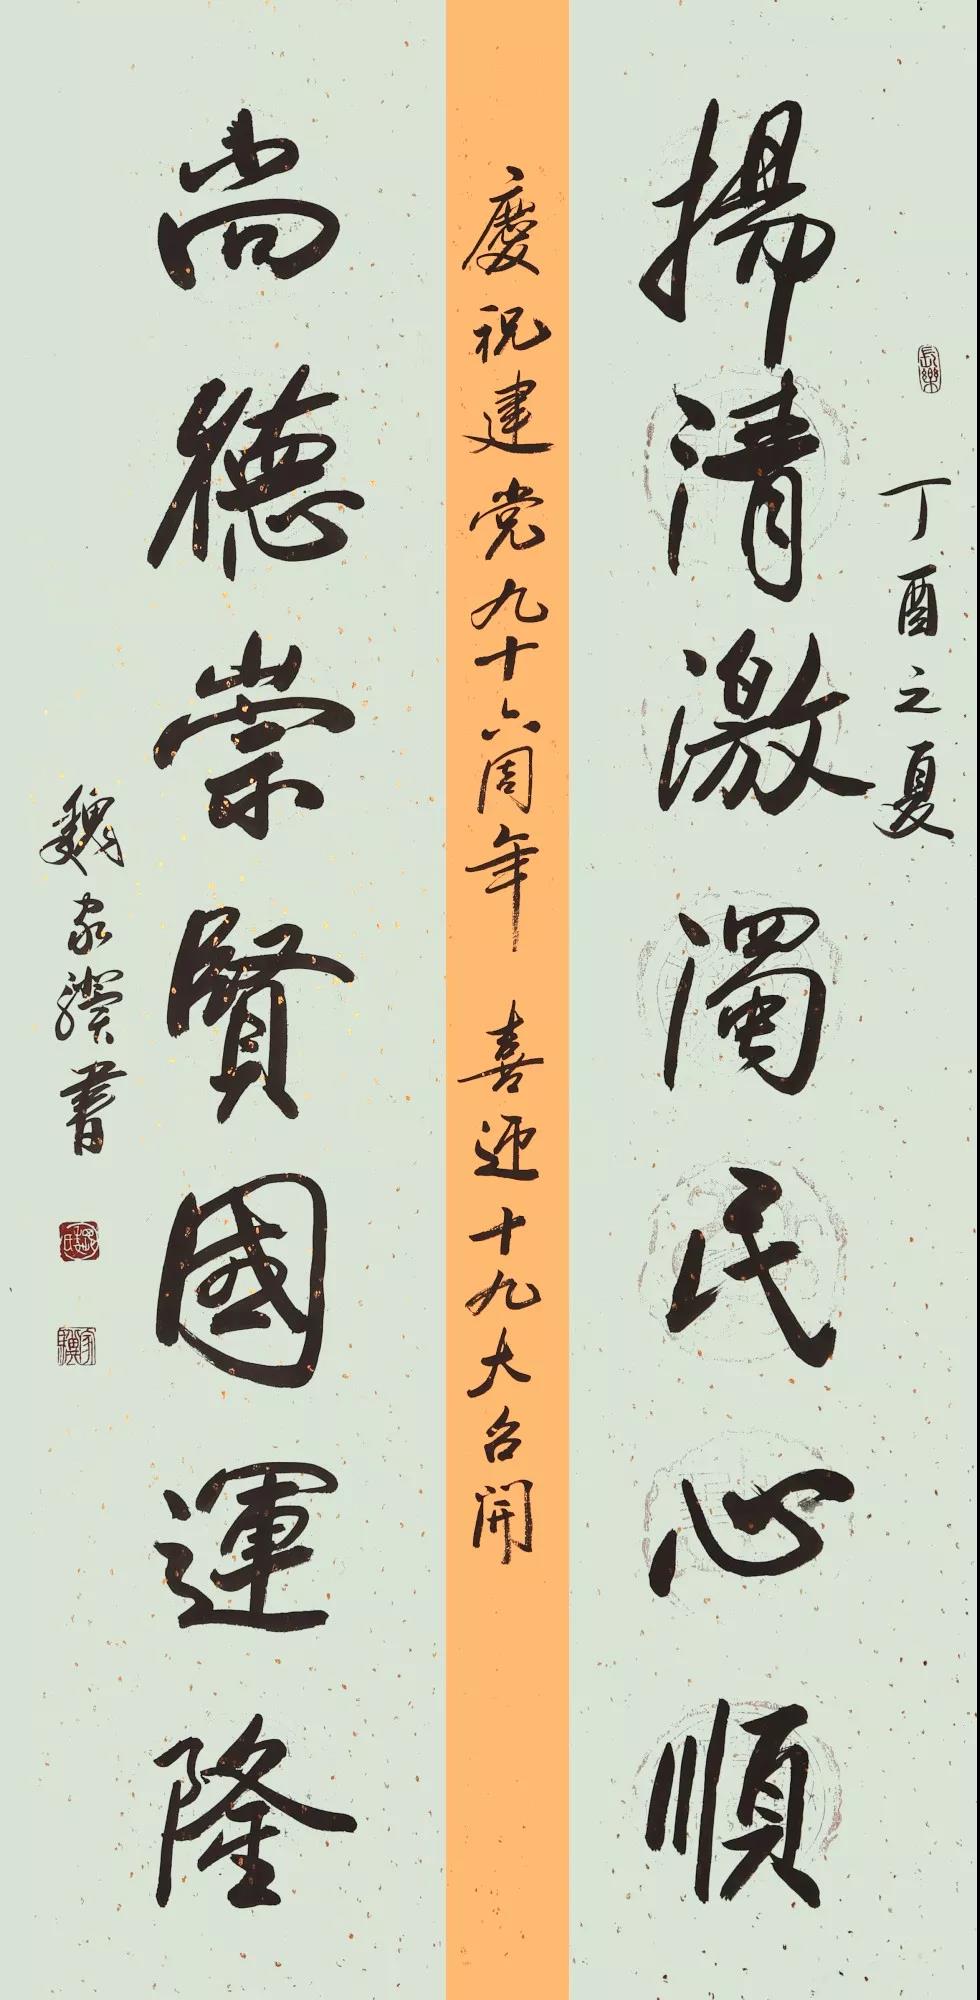 長樂
丁酉之夏
揚清激濁民心順
慶祝建党九十六周年 喜迎十九大召開
尚德崇賢國運隆
魏家驥書